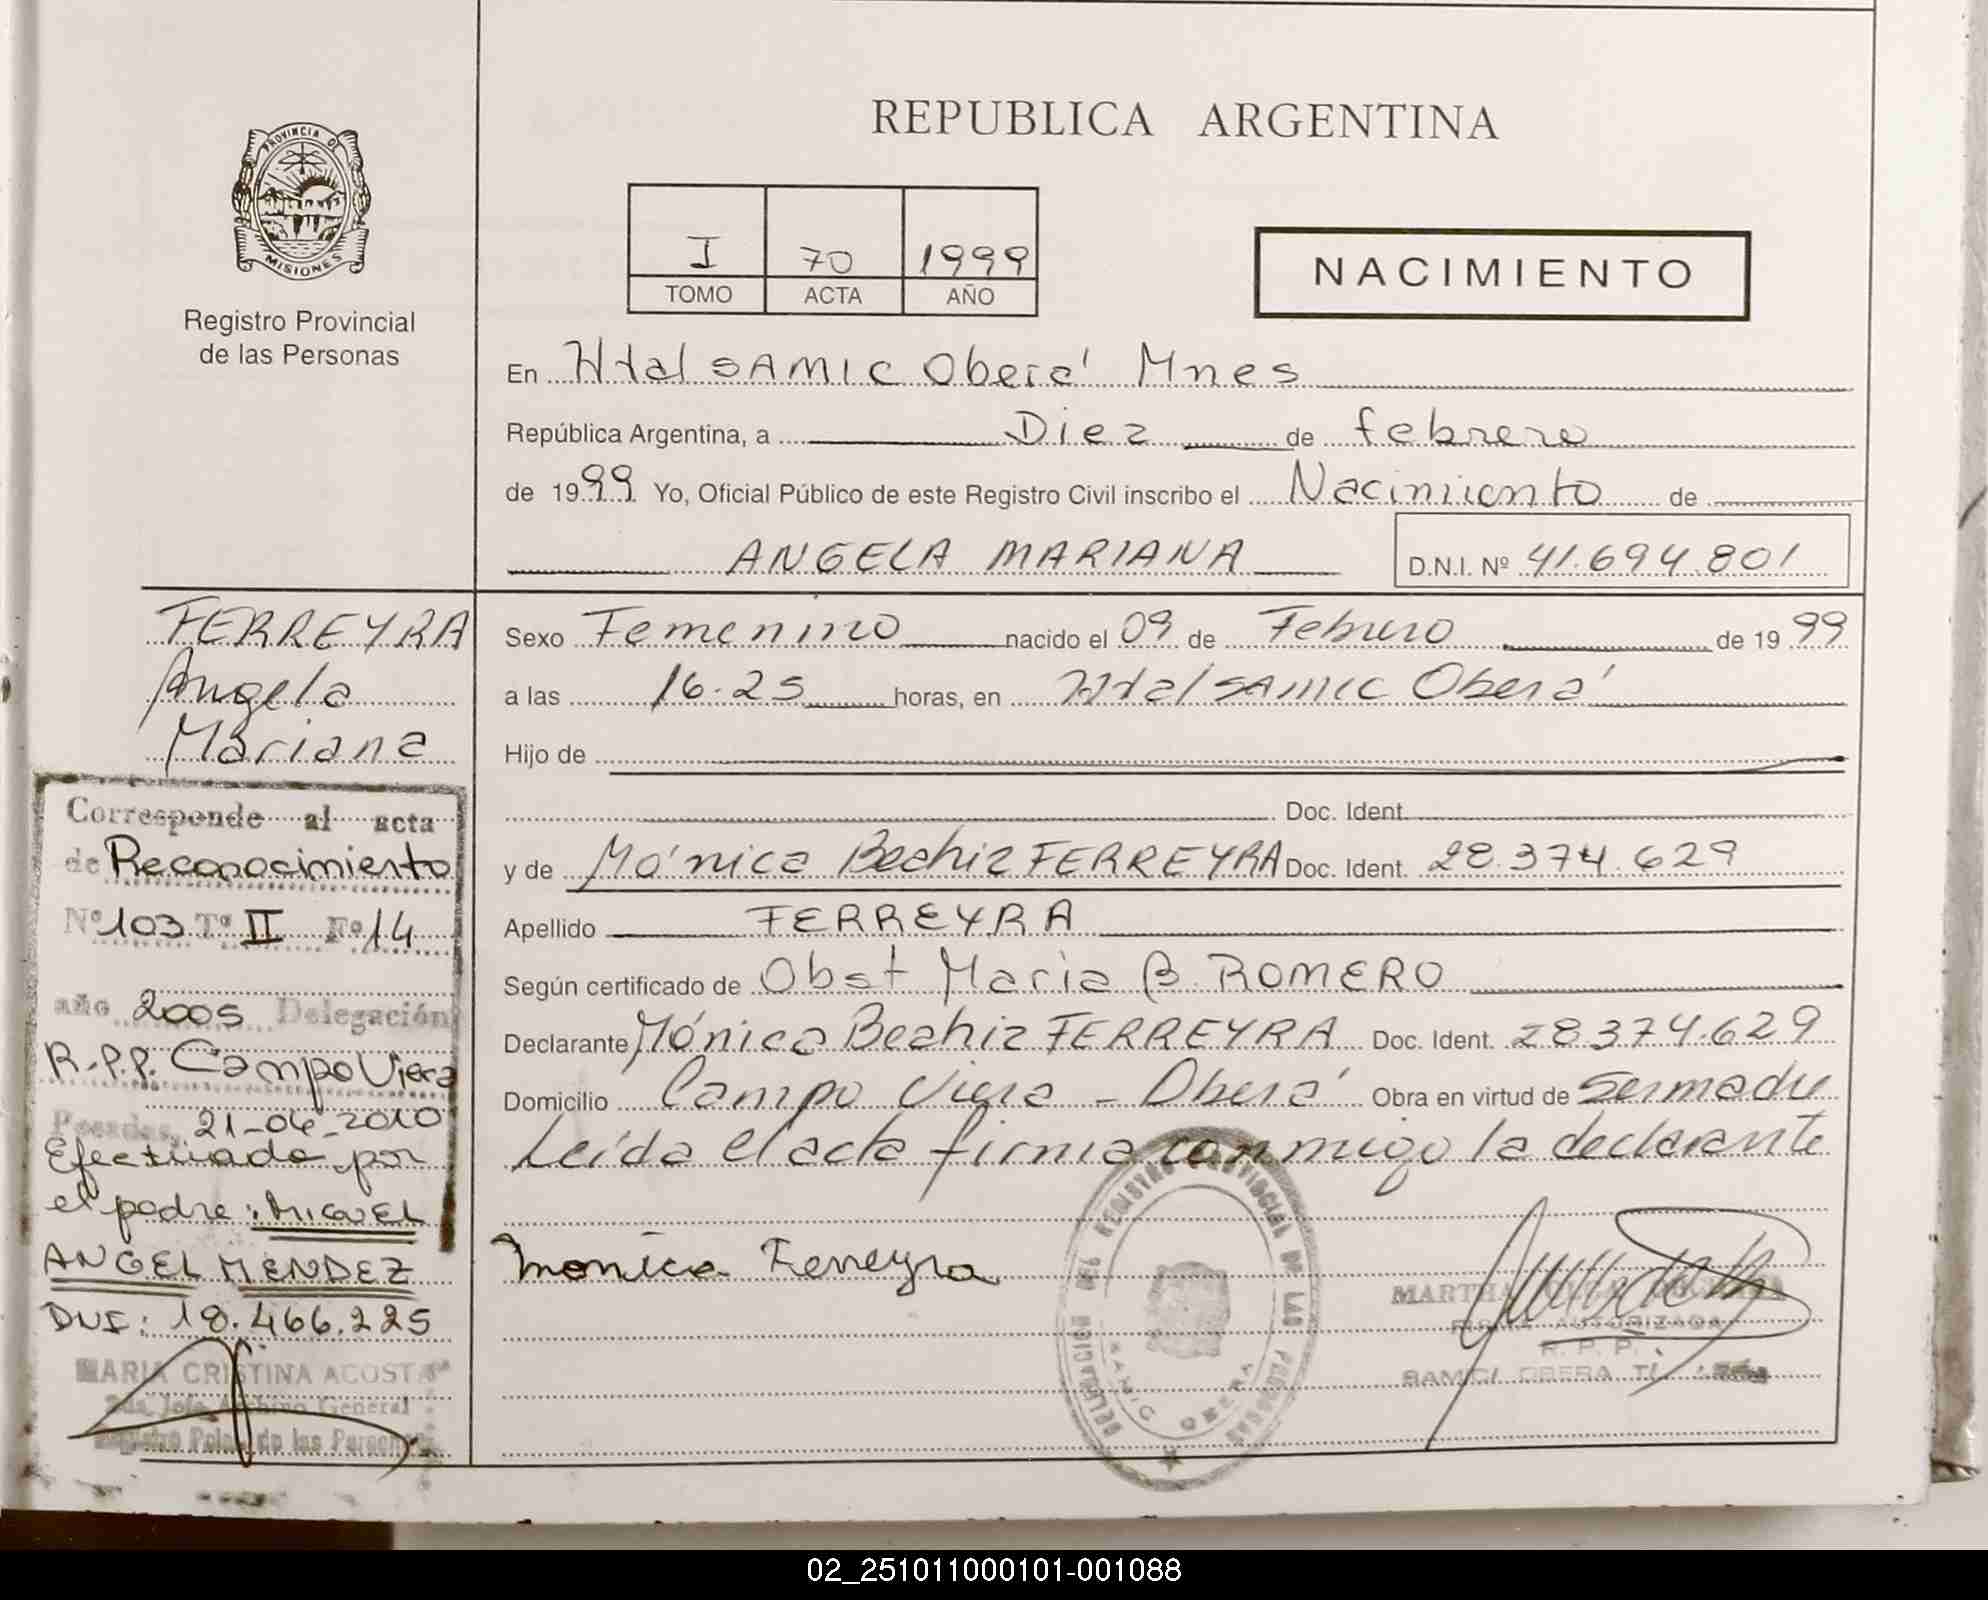 REPUBLICA ARGENTINA
PROVINCIA DE
MISIONES
Registro Provincial
de las Personas
I 70 1999
TOMO ACTA AÑO
NACIMIENTO
En Htal SAMIC Oberá Mnes
República Argentina, a Diez de febrero
de 1999 Yo, Oficial Público de este Registro Civil inscribo el Nacimiento de
ANGELA MARIANA D.N.I. Nº 41.694.801
FERREYRA
Angela
Mariana
Sexo Femenino nacido el 09 de Febrero de 1999
a las 16.25 horas, en Htal SAMIC Oberá
Hijo de
Doc. Ident.
y de Mónica Beatriz FERREYRA Doc. Ident. 28.374.629
Apellido FERREYRA
Según certificado de Obst Maria B. ROMERO
Declarante Mónica Beatriz FERREYRA Doc. Ident. 28.374.629
Domicilio Campo Viera - Oberá Obra en virtud de ser madre
Leída el acta firma conmigo la declarante
Monica Ferreyra
Corresponde al acta
de Reconocimiento
Nº 103 Tº II Fº 14
año 2005 Delegación
R.P.P. Campo Viera
Posadas, 21-04-2010
Efectuado por
el padre: MIGUEL
ANGEL MENDEZ
DNI: 18.466.225
MARIA CRISTINA ACOSTA
2da. Jefe Archivo General
Registro Pcial. de las Personas
DELEGACION DEL REGISTRO PROVINCIAL DE LAS PERSONAS
SAMIC OBERA
MARTHA
FIRMA AUTORIZADA
R. P. P.
SAMIC OBERA
02_251011000101-001088